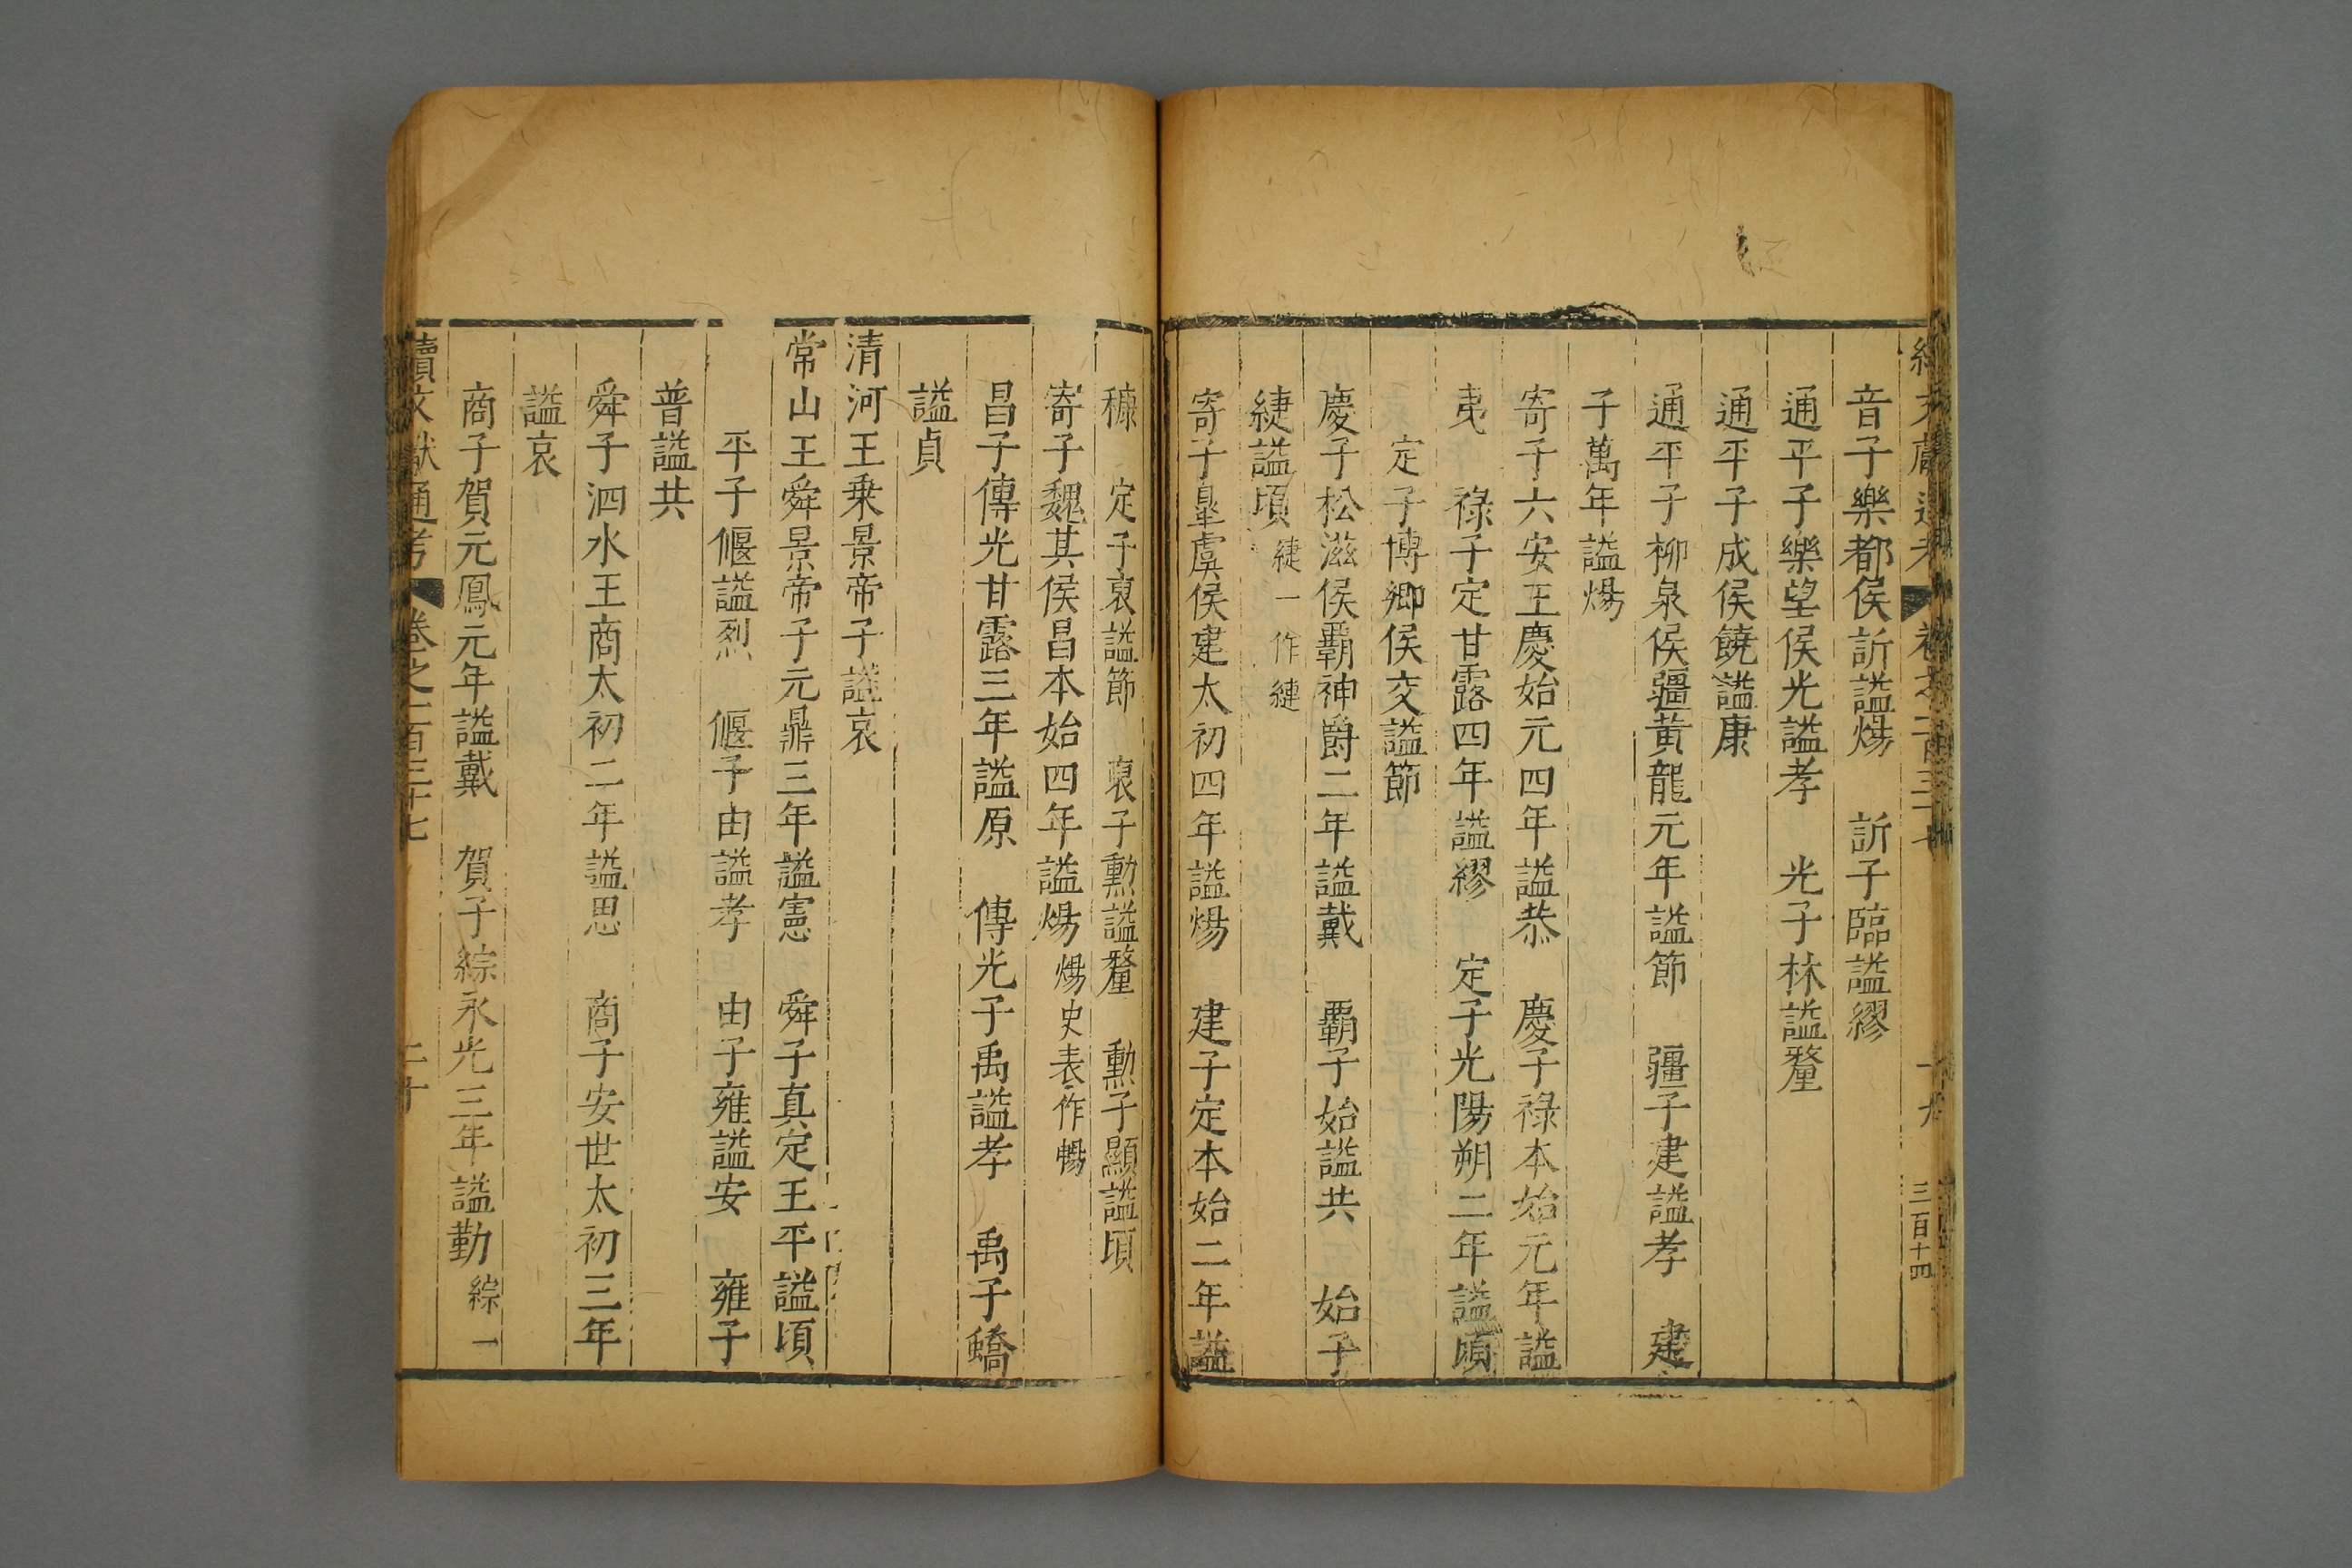 續文獻通考 卷之二百三十七 十九 三百十四
音子樂都侯訢謚煬 訢子臨謚繆
通平子樂望侯光謚孝 光子林謚釐
通平子成侯饒謚康
通平子柳泉侯疆黃龍元年謚節 疆子建謚孝 建
子萬年謚煬
寄子六安王慶始元四年謚恭 慶子祿本始元年謚
夷 祿子定甘露四年謚繆 定子光陽朔二年謚頃
定子博鄉侯交謚節
慶子松滋侯霸神爵二年謚戴 霸子始謚共 始子
緁謚頃緁一作縺
寄子臯虞侯建太初四年謚煬 建子定本始二年謚
穅 定子哀謚節 哀子勳謚釐 勳子顯謚頃
寄子魏其侯昌本始四年謚煬煬史表作暢
昌子傳光甘露三年謚原 傳光子禹謚孝 禹子蟜
謚貞
清河王乗景帝子謚哀
常山王舜景帝子元鼎三年謚憲 舜子真定王平謚頃
平子偃謚烈 偃子由謚孝 由子雍謚安 雍子
普謚共
舜子泗水王商太初二年謚思 商子安世太初三年
謚哀
商子賀元鳳元年謚戴 賀子綜永光三年謚勤綜一
續文獻通考 卷之二百三十七 二十